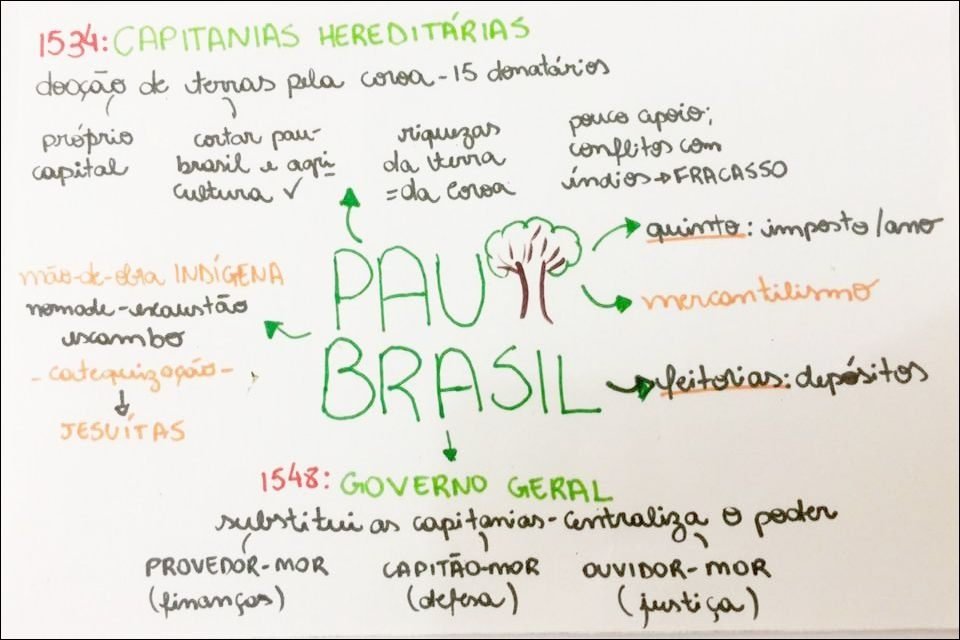 1534: CAPITANIAS HEREDITÁRIAS
doação de terras pela coroa - 15 donatários
próprio
capital
cortar pau-
brasil e agri-
cultura ✓
riquezas
da terra
= da coroa
pouco apoio;
conflitos com
índios → FRACASSO
PAU
BRASIL
quinto: imposto/ano
mercantilismo
feitorias: depósitos
mão-de-obra INDÍGENA
nomade - exaustão
escambo
- catequização -
JESUÍTAS
1548: GOVERNO GERAL
substitui as capitanias - centraliza o poder
PROVEDOR-MOR
(finanças)
CAPITÃO-MOR
(defesa)
OUVIDOR-MOR
(justiça)